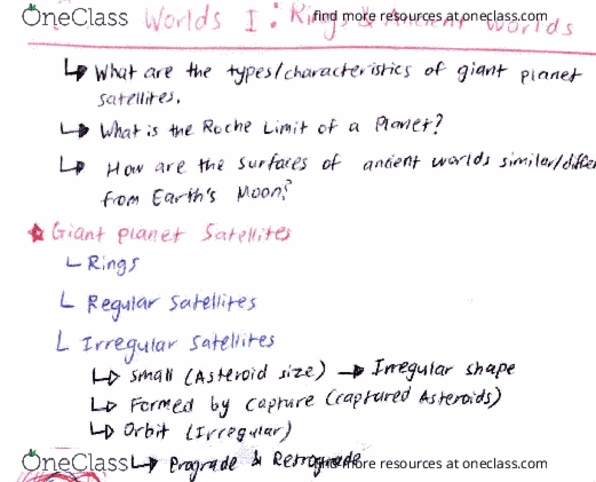 OneClass find more resources at oneclass.com
Worlds I: Rings & Ancient Worlds
↳ What are the types/characteristics of giant planet
satellites.
↳ What is the Roche Limit of a Planet?
↳ How are the surfaces of ancient worlds similar/differ
from Earth's Moon?
★ Giant planet Satellites
└ Rings
└ Regular Satellites
└ Irregular Satellites
↳ Small (Asteroid size) → Irregular shape
↳ Formed by capture (captured Asteroids)
↳ Orbit (Irregular)
↳ Prograde & Retrograde
OneClass find more resources at oneclass.com